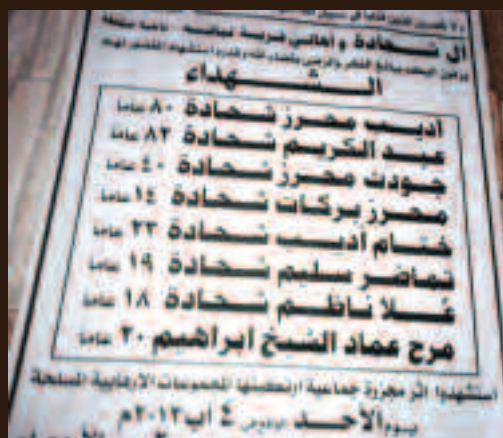 آل شحادة و أهالي قرية
الشهداء
أديب محرز شحادة ٨٠ عاما
عبد الكريم شحادة ٨٢ عاما
جودت محرز شحادة ٤٠ عاما
محرز بركات شحادة ١٤ عاما
ختام أديب شحادة ٣٣ عاما
تماضر سليم شحادة ١٩ عاما
علا ناظم شحادة ١٨ عاما
مرح عماد الشيخ ابراهيم ٢٠ عاما
استشهدوا اثر مجزرة جماعية ارتكبتها المجموعات الارهابية المسلحة
يوم الأحد ٤ آب ٢٠١٣م